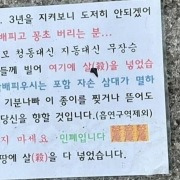 . 3년을 지켜보니 도저히 안되겠어
배피고 꽁초 버리는 분...
모 청동대신 지동대신 무장승
들께 빌어 여기에 살(殺)을 넣었습
배피우시는 포함 자손 삼대가 멸하
기분나빠 이 종이를 찢거나 뜯어도
당신을 향할 것입니다. (흡연구역제외)
지 마세요. 민폐입니다
땅에 살(殺)을 다 넣었습니다.